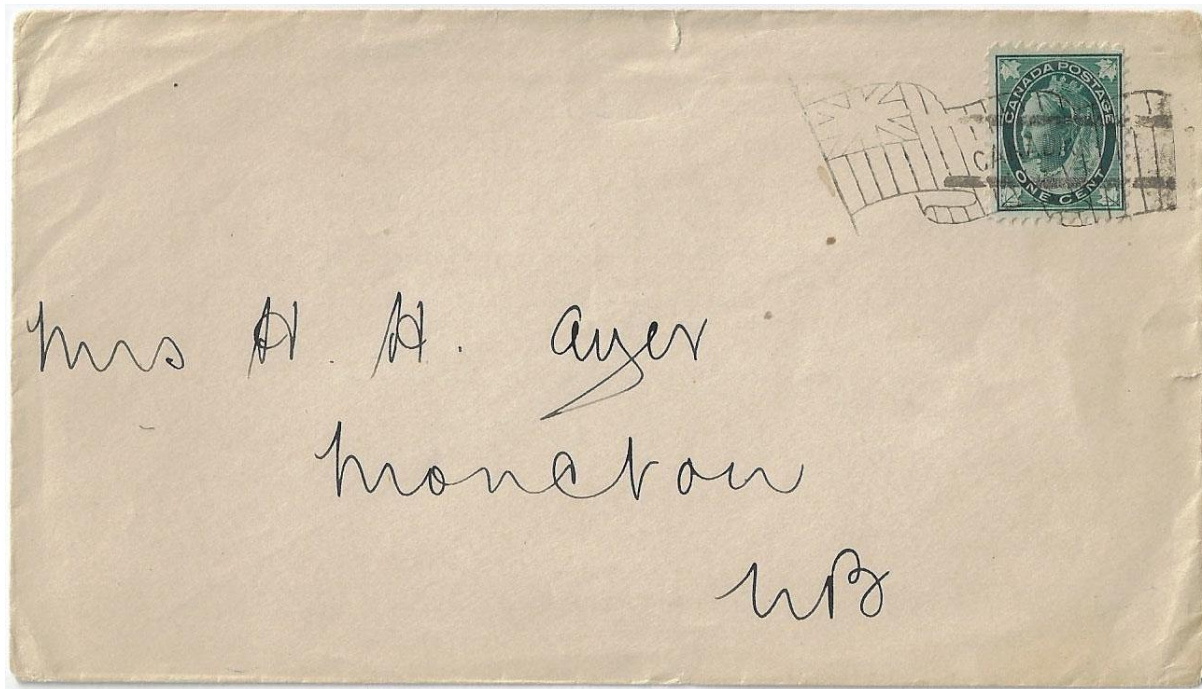 CANADA POSTAGE
ONE CENT
Mrs H. H. Ayer
Moncton
NB